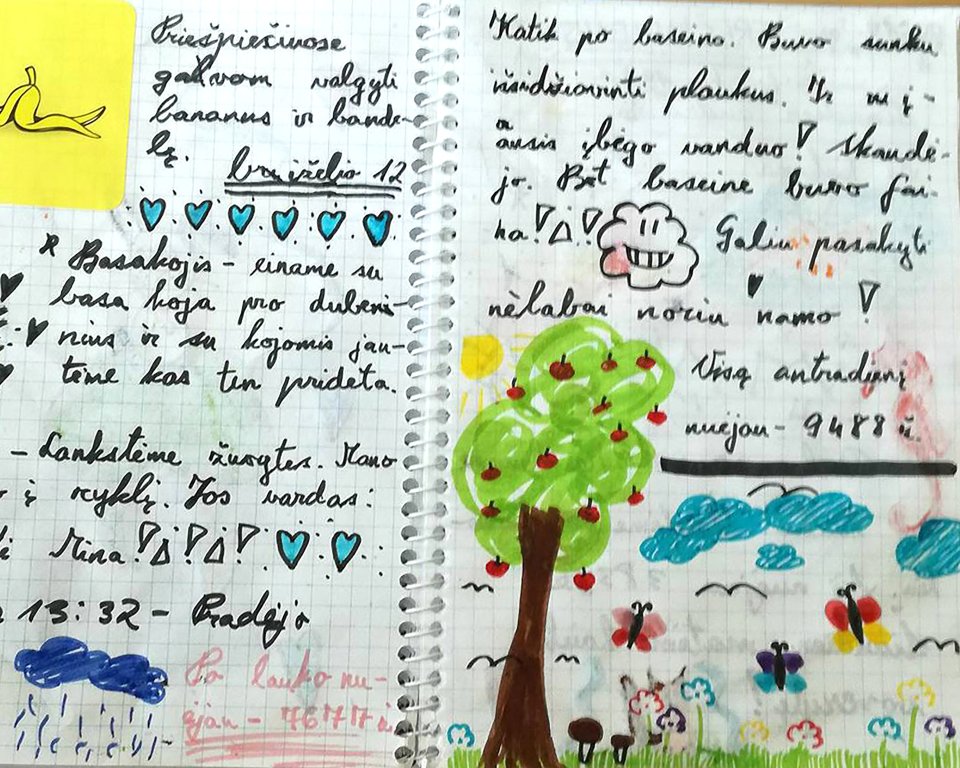 Priešpiečiuose
galvom valgyti
bananus ir bande-
lę.
birželio 12
* Basakojis - einame su
basa koja pro dubeni-
nius ir su kojomis jau-
tėme kas ten pridėta.
- Lankstėme žuvytes. Mano
į ryklį. Jos vardas:
Mina!
13:32 - Pradėjo
Po lauko nu-
ėjau - 7677
Katik po baseino. Buvo sunku
išsidžiovinti plaukus. Ir m į -
ausis įbėgo vanduo! Skaudė-
jo. Bet baseine buvo fai-
na!!
Galiu pasakyti
nėlabai noriu namo!
Visą antradienį
nuėjau - 9488 ž.